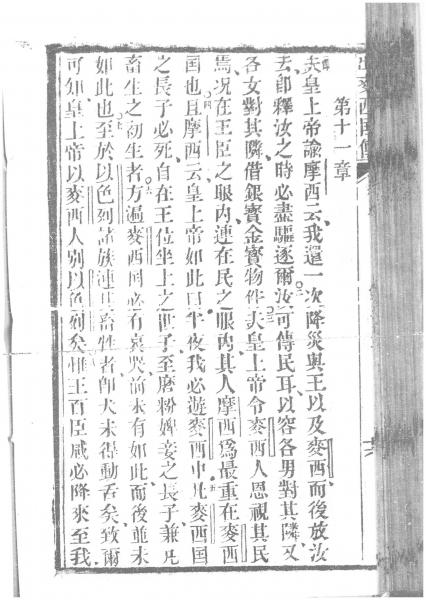 第十一章
夫皇上帝諭摩西云我還一次降災與王以及麥西而後放汝
去卽釋汝之時必盡驅逐爾汝可傳民耳以容各男對其隣又
各女對其隣借銀寶金寶物件夫皇上帝令麥西人恩視其民
焉况在王臣之眼內連在民之眼內其人摩西爲最重在麥西
国也且摩西云皇上帝如此曰半夜我必遊麥西中凡麥西国
之長子必死自在王位坐上之酉子至磨粉婢妾之長子兼凡
畜生之初生者方遍麥西国必有哀哭前未有如此而後並未
如此也至於以色列諸族連其畜牲者卽犬未得動舌矣致爾
可知皇上帝以麥西人別以色列矣惟王百臣咸必降來至我